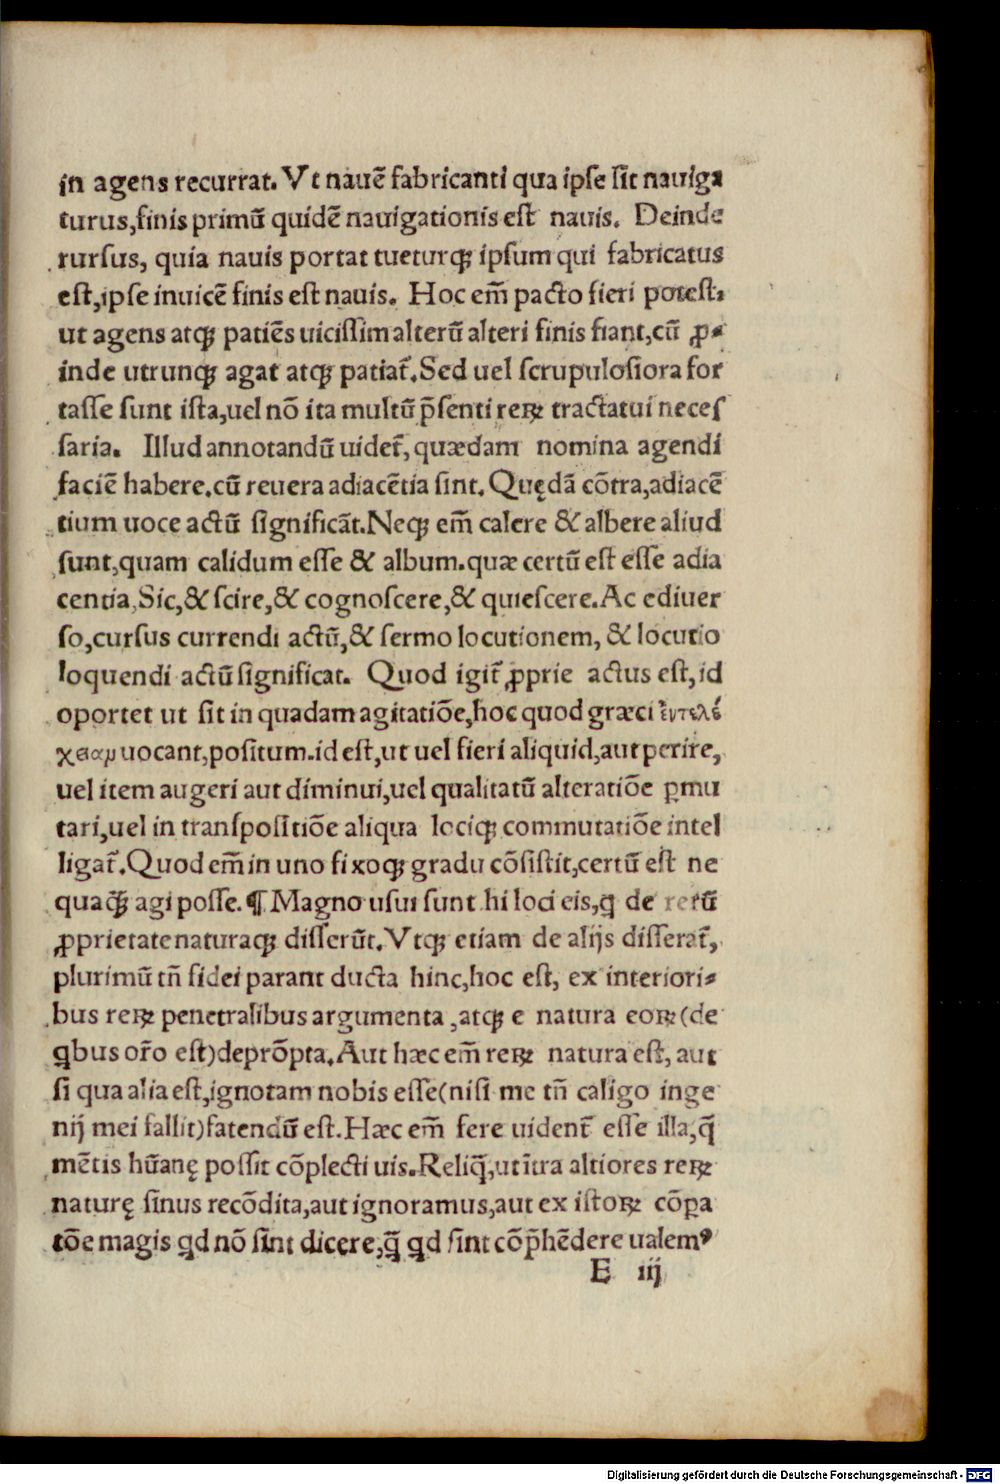 in agens recurrat. Vt nauē fabricanti qua ipse sit nauiga
turus, finis primū quidē nauigationis est nauis. Deinde
rursus, quia nauis portat tueturqꝫ ipsum qui fabricatus
est, ipse inuicē finis est nauis. Hoc em̃ pacto fieri potest,
ut agens atqꝫ patiēs uicissim alterū alteri finis fiant, cū ꝓ-
inde utrunqꝫ agat atqꝫ patiat᷑. Sed uel scrupulosiora for
tasse sunt ista, uel nō ita multū p̄senti reꝝ tractatui neces
saria. Illud annotandū uidet᷑, quædam nomina agendi
faciē habere. cū reuera adiacētia sint. Quędā cōtra, adiacē
tium uoce actū significāt. Neqꝫ em̃ calere & albere aliud
sunt, quam calidum esse & album. quæ certū est esse adia
centia, Sic, & scire, & cognoscere, & quiescere. Ac ediuer
so, cursus currendi actū, & sermo locutionem, & locutio
loquendi actū significat. Quod igit᷑ ꝓprie actus est, id
oportet ut sit in quadam agitatiōe, hoc quod græci ἐντελέ
χειαμ uocant, positum. id est, ut uel fieri aliquid, aut perire,
uel item augeri aut diminui, uel qualitatū alteratiōe ꝑmu
tari, uel in transpositiōe aliqua lociqꝫ commutatiōe intel
ligat᷑. Quod em̃ in uno fixoqꝫ gradu cōsistit, certū est ne
quaqꝫ̄ agi posse. ¶ Magno usui sunt hi loci eis, ꝗ de rerū
ꝓprietate naturaqꝫ disserūt. Vtqꝫ etiam de alijs disserat᷑,
plurimū tñ fidei parant ducta hinc, hoc est, ex interiori-
bus reꝝ penetralibus argumenta, atqꝫ e natura eoꝝ (de
ꝗbus or̃o est) deprōpta. Aut hæc em̃ reꝝ natura est, aut
si qua alia est, ignotam nobis esse (nisi me tñ caligo inge
nij mei fallit) fatendū est. Hæc em̃ fere uident᷑ esse illa, q̄
mētis hūanę possit cōplecti uis. Reliq̄, ut īt̄ra altiores reꝝ
naturę sinus recōdita, aut ignoramus, aut ex istoꝝ cōꝑa
tōe magis ꝗd nō sint dicere, ꝗ̄ ꝗd sint cōp̄hēdere ualemꝰ
E iij
Digitalisierung gefördert durch die Deutsche Forschungsgemeinschaft - DFG